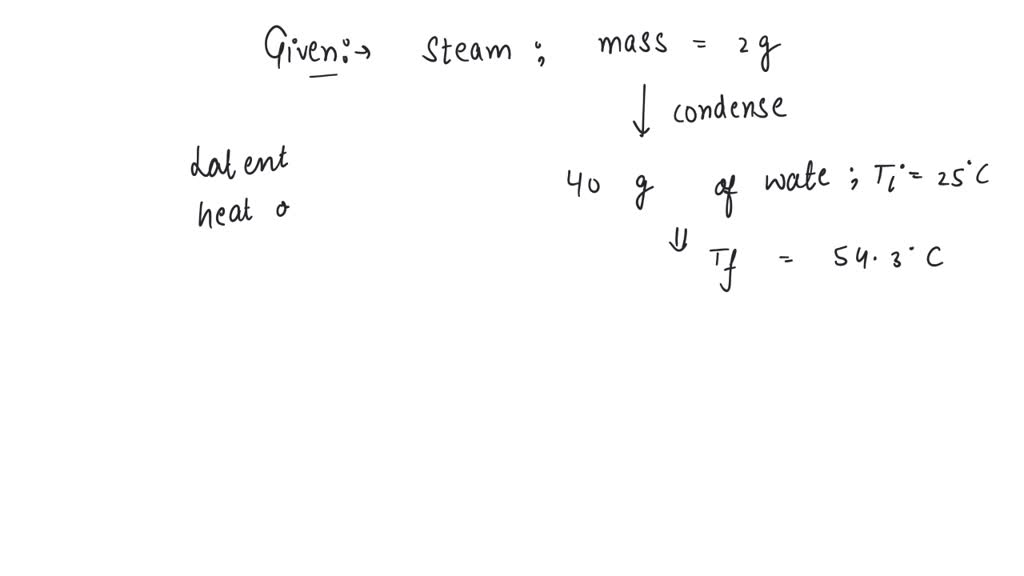 Given:→ Steam ; mass = 2g
↓ condense
Latent
heat o
40 g of wate ; Ti = 25°C
⇓ Tf = 54.3°C